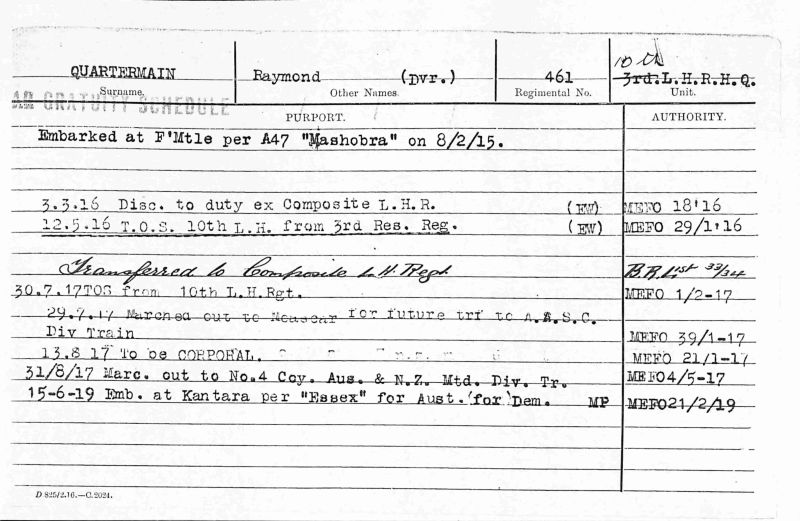 10th
QUARTERMAIN Raymond (Dvr.) 461 3rd.L.H.R.H.Q.
Surname. Other Names. Regimental No. Unit.
GRATUITY SCHEDULE
PURPORT. AUTHORITY.
Embarked at F'Mtle per A47 "Mashobra" on 8/2/15.
3.3.16 Disc. to duty ex Composite L.H.R. (EW) MEFO 18'16
12.5.16 T.O.S. 10th L.H. from 3rd Res. Reg. (EW) MEFO 29/1'16
Transferred to Composite L.H. Regt B.R. List 33/34
30.7.17 TOS from 10th L.H.Rgt. MEFO 1/2-17
29.7.17 Marched out to Moascar for future trf to A.A.S.C.
Div Train MEFO 39/1-17
13.8 17 To be CORPORAL. MEFO 21/1-17
31/8/17 Marc. out to No.4 Coy. Aus. & N.Z. Mtd. Div. Tr. MEFO4/5-17
15-6-19 Emb. at Kantara per "Essex" for Aust. for Dem. MP MEFO21/2/19
D 825/2.16.—C.2024.